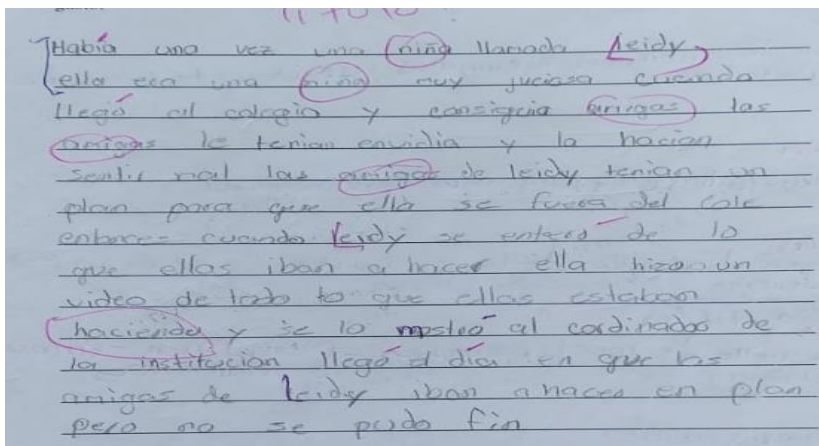 TITULO
Había una vez una niña llamada Leidy,
ella era una niña muy juciosa cuando
llegó al colegio y consiguio amigas las
amigas le tenian envidia y la hacian
sentir mal las amigas de leidy tenian un
plan para que ella se fuera del cole
entonces cuando leidy se enteró de lo
que ellas iban a hacer ella hizo un
video de todo lo que ellas estaban
haciendo y se lo mostró al cordinador de
la institucion llegó el día en que las
amigas de Leidy iban a hacer en plan
pero no se pudo fin